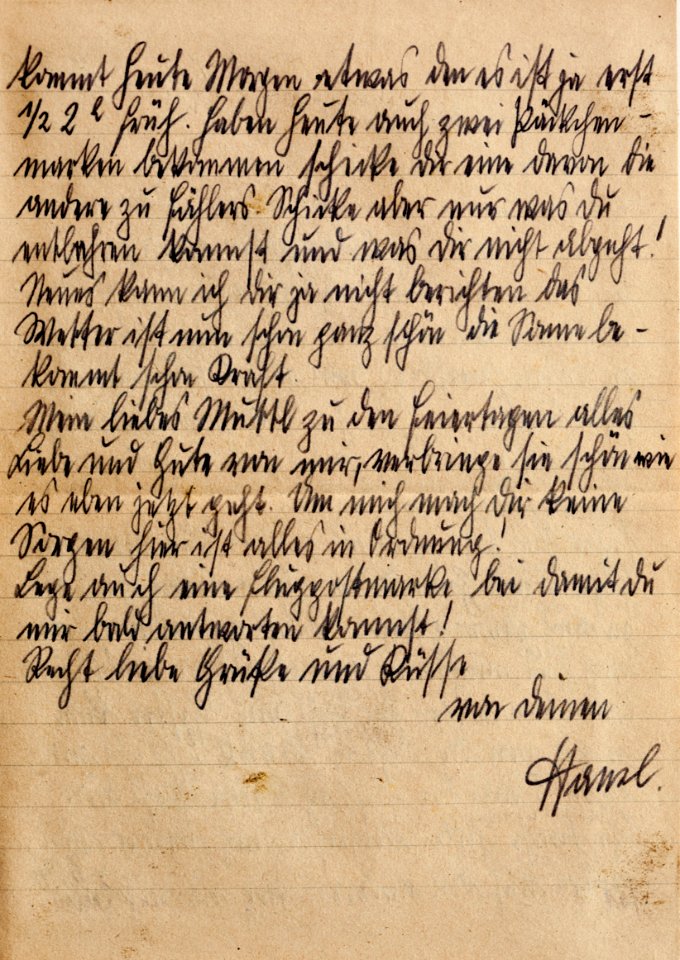 kommt heute Morgen etwas den es ist ja erst
1/2 2 h früh. Haben heute auch zwei Päckchen-
marken bekommen schicke dir eine davon die
andere zu Fählers. Schicke aber nur was du
entbehren kannst und was dir nicht abgeht!
Neues kann ich dir ja nicht berichten das
Wetter ist nun schon ganz schön die Sonne be-
kommt schon Kraft.
Mein liebes Muttl zu den Feiertagen alles
Liebe und Gute von mir, verbringe sie schön wie
es eben jetzt geht. Um mich mach dir keine
Sorgen hier ist alles in Ordnung!
Lege auch eine Flugpostmarke bei damit du
mir bald antworten kannst!
Recht liebe Grüße und Küsse
von deinen